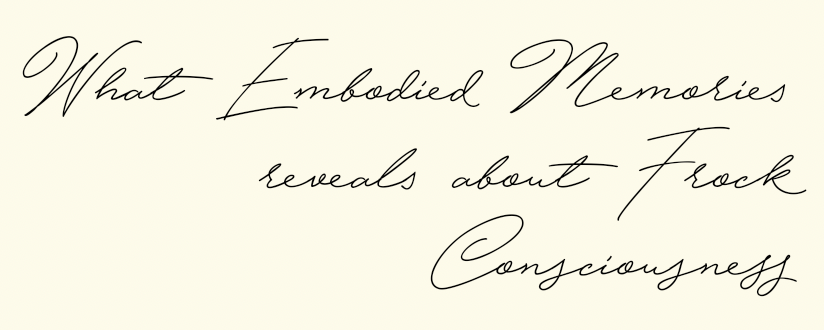 What Embodied Memories
reveals about Frock
Consciousness